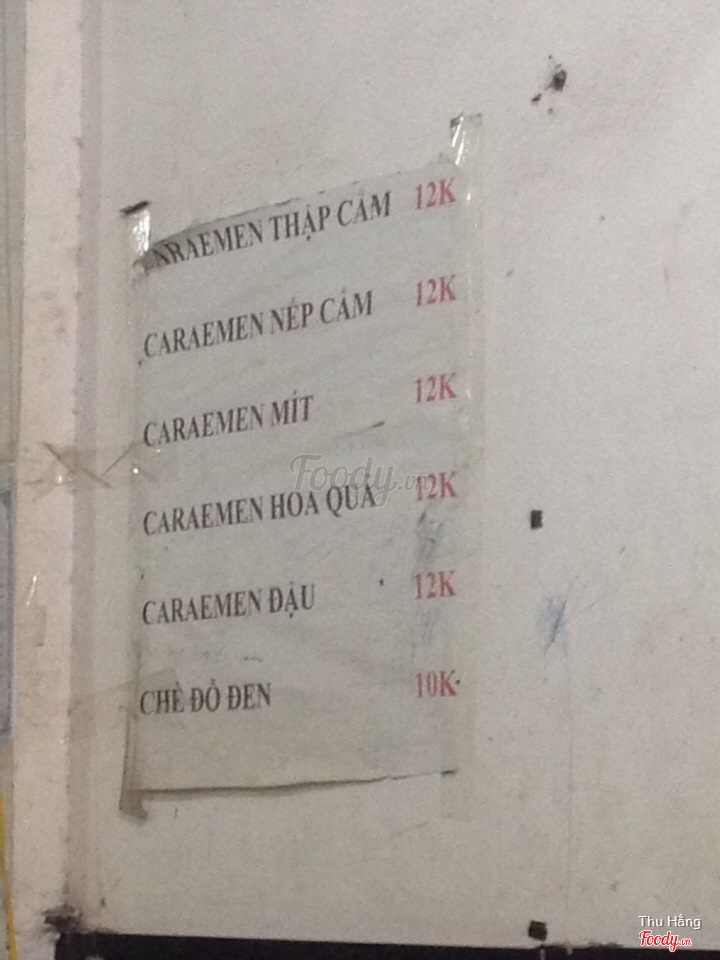 CARAEMEN THẬP CẨM 12K
CARAEMEN NẾP CẨM 12K
CARAEMEN MÍT 12K
CARAEMEN HOA QUẢ 12K
CARAEMEN ĐẬU 12K
CHÈ ĐỖ ĐEN 10K
Foody.vn
Thu Hằng
Foody.vn